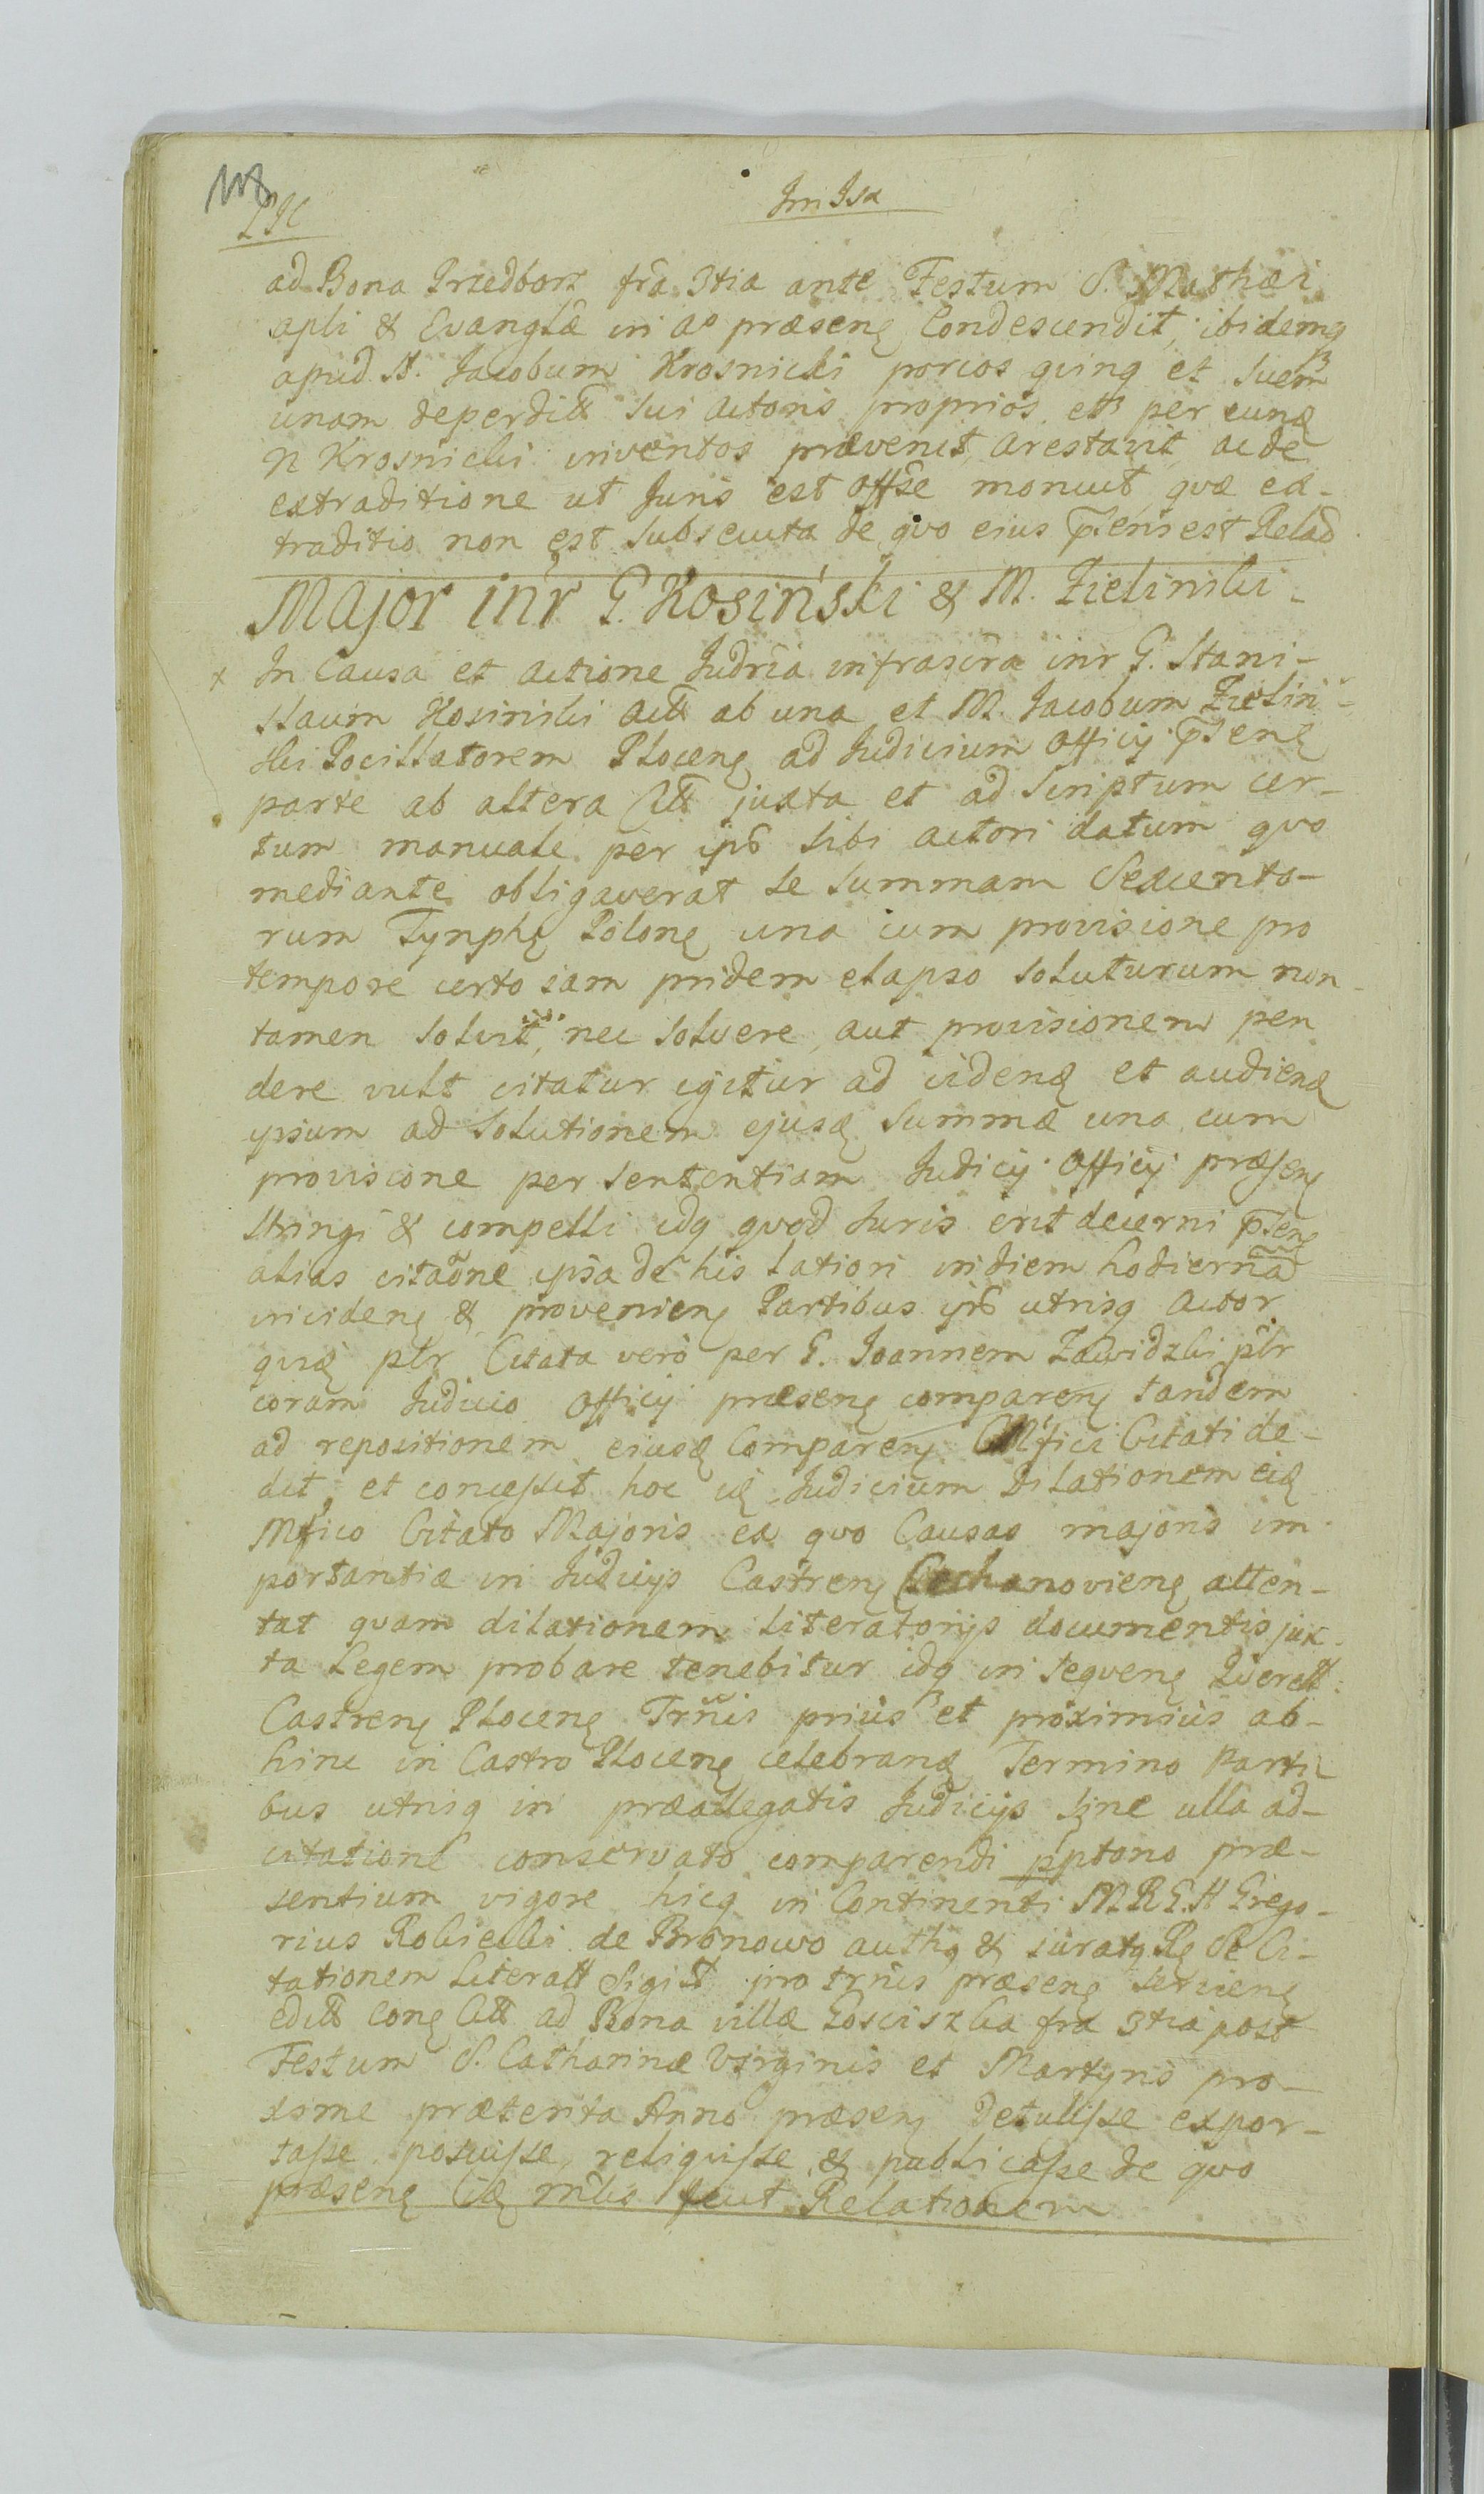 108
Im Isa
ad Bona Przedborz fra 3tia ante Festum S. Mathæi
apli & Evanglæ in Ao præsenę Condescendit, ibidemq
apud N. Jacobum Krosnicki porcos qvinq et Suem
unam deperdit sui Actoris proprios et per eund
N Krosnicki inventos prævenit, arestavit, ac de
extraditione ut Juris est offse monuit, qvæ ex-
traditio non est subsecuta de qvo eius pñs est Relaõ
Major inr G. Kosiński & M. Zielinski
x In Causa et Actione Judria infrascra inr G. Stani-
slaum Kosinski Act ab una et M. Jacobum Zielin-
ski Pocillatorem Plocenę ad Judicium Officij p̃senę
parte ab altera Citt juxta et ad Scriptum cer-
tum manuale per ips sibi actori datum qvo
mediante obligaverat se summam Sexcento-
rum Tynphę Polonę una cum provisione pro
tempore certo iam pridem elapso soluturum non
tamen solvit, nec solvere, aut provisionem pen
dere vult citatur igitur ad videnę et audienę
ipsum ad Solutionem ejusę Summæ una cum
provisione per sententiam Judicij Officij præsenę
stringi & compelli idq qvod Juris erit decerni p̃senę
alias citaõne ipsa de his latiori in diem hodiernã
incidenę & provenienę Partibus ips utrisq Actor
qvię plr Citata verò per G. Joannem Zawidzki plr
coram Judicio Officij præsenę comparenę tandem
ad repositionem eiusę Comparenę Mfici Citati de-
dit, et concessit hoc ię Judicium Dilationem eię
Mfico Citato Majoris ex qvo Causas majoris im-
portantiæ in Judicijs Castrenę Ciechanovienę atten-
tat qvam dilationem literatorijs documentis jux-
ta Legem probare tenebitur idq in seqvenę Qverell:
Castrenę Plocenę Trñis priùs et proximiùs ab-
hinc in Castro Plocenę celebranę Termino Parti-
bus utrisq in præallegatis Judicijs sine ulla ad-
citatione conservato comparendi pptorio præ-
sentium vigore hicq in Continenti MRGH Grego-
rius Robiecki de Bronowo authq & iuratq Rę Se Ci-
tationem Literatt Sigill pro trñis præsenę servienę
edit conę Citt ad Bona villæ Gosciszka fra 3tia post
Festum S. Catharinæ Virginis et Martyris pro-
xime præterita Anno præsenę Detulisse expor-
tasse, posuisse, reliqvisse, & publicasse de qvo
præsenę Cię mlis fecit Relationem